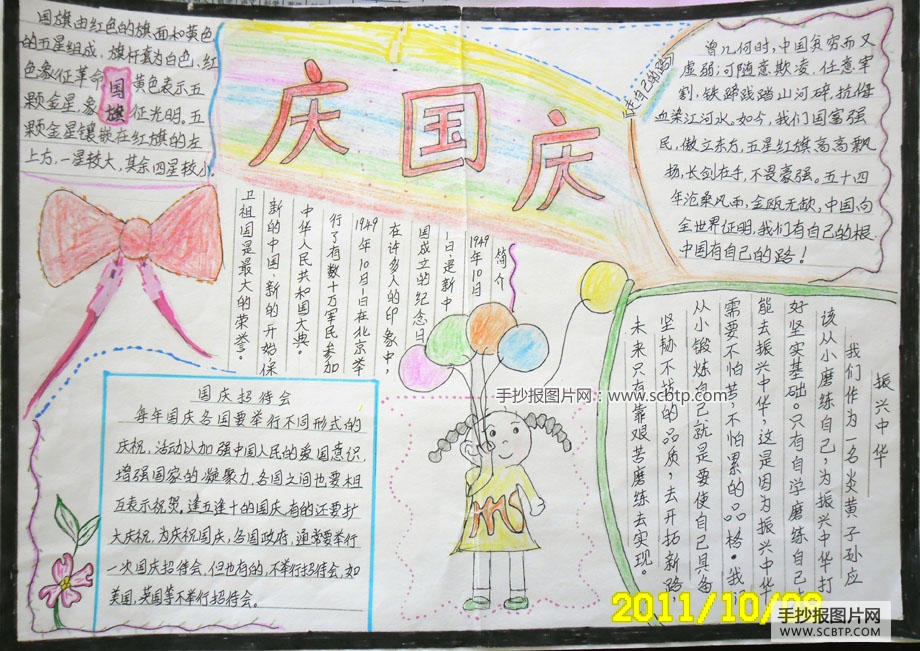 国旗由红色的旗面和黄色
的五星组成，旗杆套为白色、红
色象征革命，黄色表示五
颗金星象征光明。五
颗金星镶嵌在红旗的左
上方，一星较大，其余四星较小。
国旗
庆国庆
《走自己的路》
曾几何时，中国贫穷而又
虚弱；可随意欺凌，任意宰
割，铁蹄践踏山河碎，抗侮
血染江河水。如今，我们国富强
民，傲立东方，五星红旗高高飘
扬，长剑在手，不畏豪强。五十四
年沧桑风雨，金瓯无缺，中国，向
全世界证明，我们有自己的根，
中国有自己的路！
简介
1949年10月
1日，是新中
国成立的纪念日
在许多人的印象中，
1949年10月1日在北京举
行了有数十万军民参加
中华人民共和国大典。
新的中国，新的开始，保
卫祖国是最大的荣誉。
国庆招待会
每年国庆各国要举行不同形式的
庆祝，活动以加强中国人民的爱国意识，
增强国家的凝聚力，各国之间也要相
互表示祝贺，逢五逢十的国庆，有的还要扩
大庆祝，为庆祝国庆，各国政府，通常要举行
一次国庆招待会，但也有的，不举行招待会，如
美国，英国等不举行招待会。
振兴中华
我们作为一名炎黄子孙应
该从小磨练自己，为振兴中华打
好坚实基础。只有自学磨练自己
能去振兴中华，这是因为振兴中华
需要不怕苦，不怕累的品格。我
从小锻炼自己就是要使自己具备
坚韧不拔的品质，去开拓新路，
未来只有靠艰苦磨练去实现。
手抄报图片网：www.scbtp.com
2011/10/
手抄报图片网
WWW.SCBTP.COM